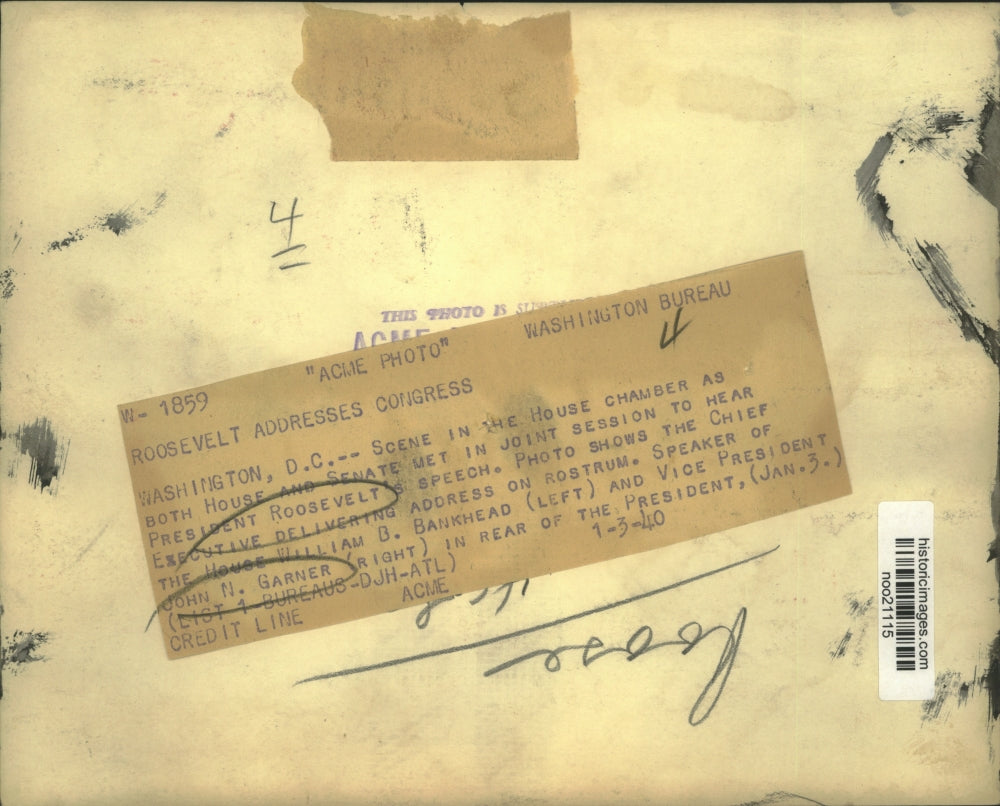 4
THIS PHOTO IS
ACME
"ACME PHOTO" WASHINGTON BUREAU
4
W- 1859
ROOSEVELT ADDRESSES CONGRESS
WASHINGTON, D.C.-- SCENE IN THE HOUSE CHAMBER AS
BOTH HOUSE AND SENATE MET IN JOINT SESSION TO HEAR
PRESIDENT ROOSEVELT'S SPEECH. PHOTO SHOWS THE CHIEF
EXECUTIVE DELIVERING ADDRESS ON ROSTRUM. SPEAKER OF
THE HOUSE WILLIAM B. BANKHEAD (LEFT) AND VICE PRESIDENT
JOHN N. GARNER (RIGHT) IN REAR OF THE PRESIDENT, (JAN.3.)
(LIST 1-BUREAUS-DJH-ATL) 1-3-40
CREDIT LINE ACME
Roose
historicimages.com
noo21115